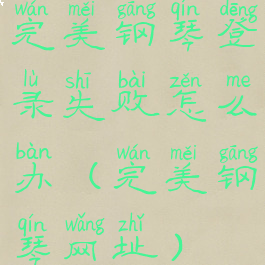 wán měi gāng qín dēng
完美钢琴登
lù shī bài zěn me
录失败怎么
bàn wán měi gāng
办（完美钢
qín wǎng zhǐ
琴网址）